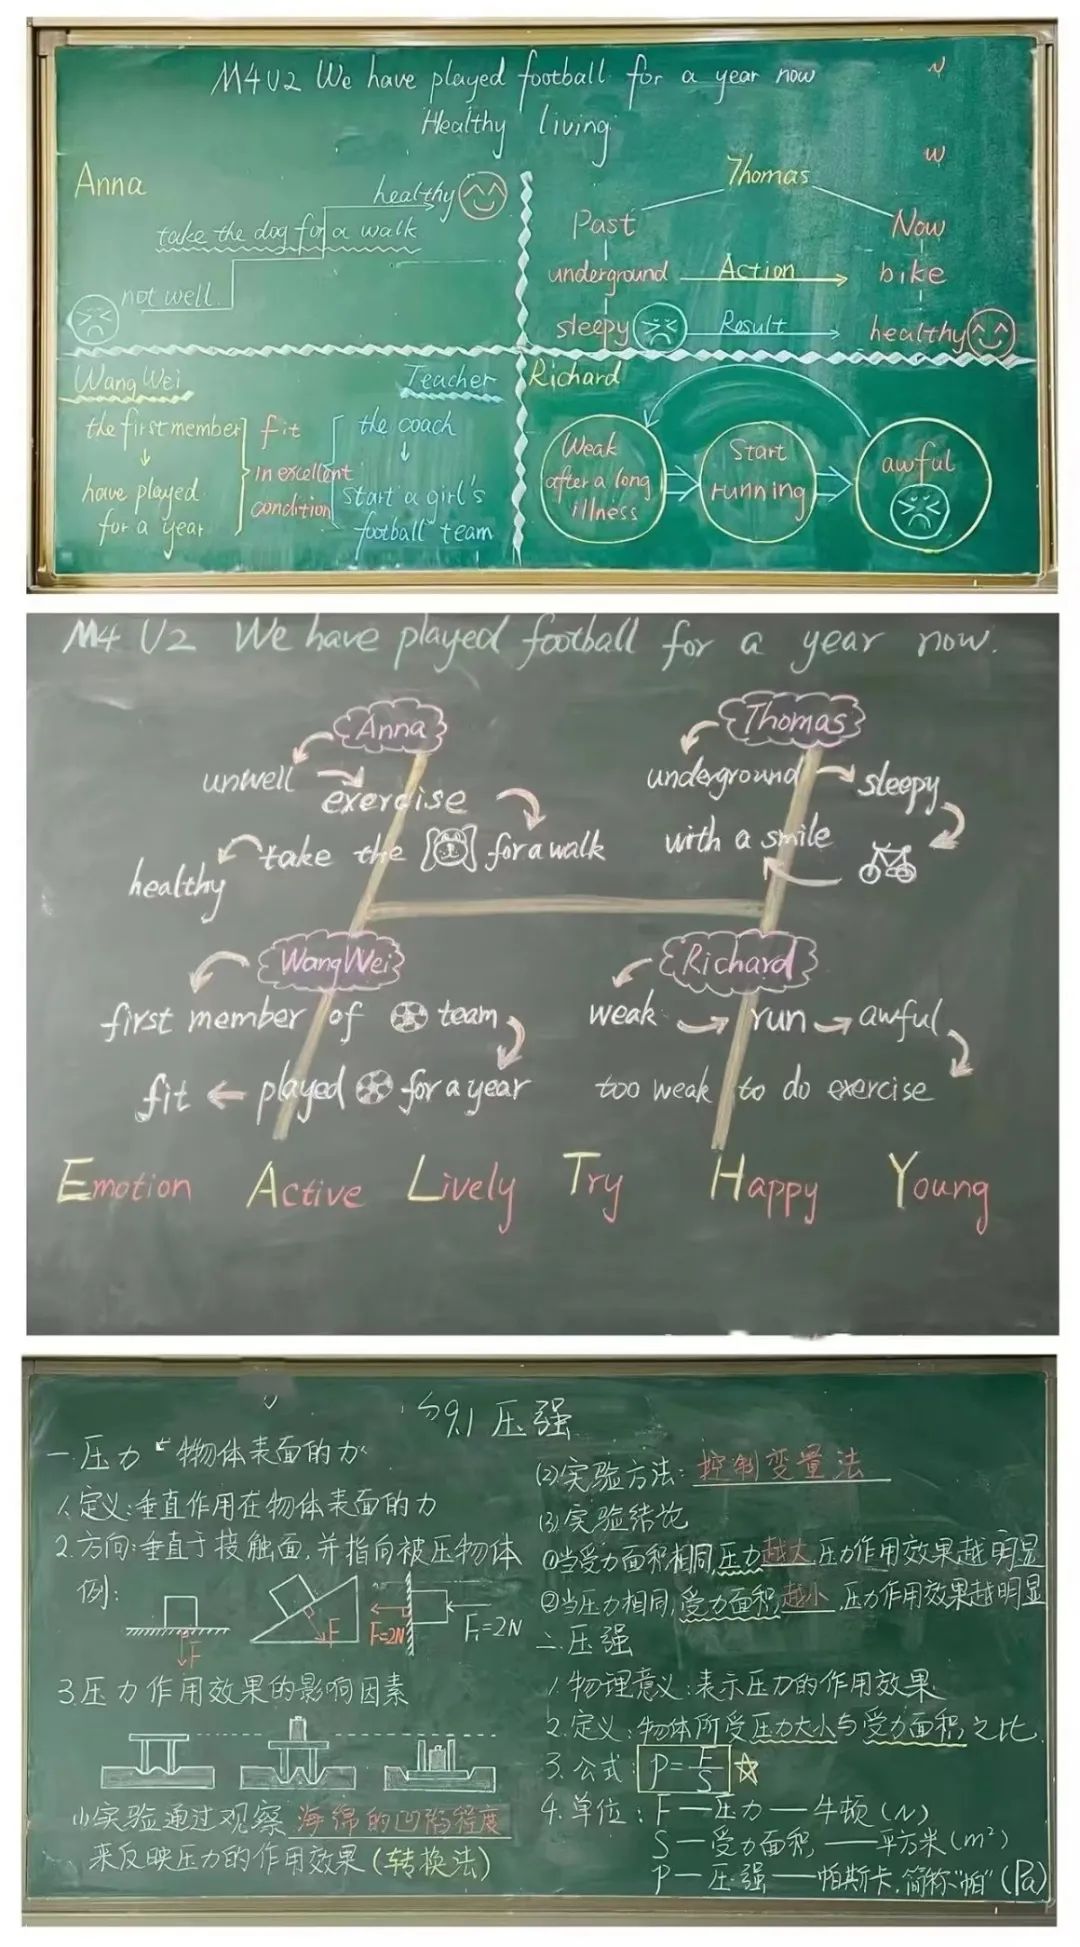 M4U2 We have played football for a year now
Healthy living
Anna
healthy
take the dog for a walk
not well
Thomas
Past
Now
underground Action bike
sleepy Result healthy
N
W
Wang Wei
the first member
have played
for a year
fit
in excellent
condition
Teacher
the coach
start a girl's
football team
Richard
Weak
after a long
illness
Start
running
awful
M4 U2 We have played football for a year now.
Anna
unwell
exercise
take the for a walk
healthy
Thomas
underground
sleepy
with a smile
WangWei
first member of team
fit played for a year
Richard
weak run awful
too weak to do exercise
Emotion Active Lively Try Happy Young
§9.1 压强
一.压力
物体表面的力
1.定义:垂直作用在物体表面的力
2.方向:垂直于接触面,并指向被压物体
例:
F
F
F=2N
F₁=2N
3.压力作用效果的影响因素
(1)实验通过观察海绵的凹陷程度
来反映压力的作用效果(转换法)
(2)实验方法:控制变量法
(3)实验结论
①当受力面积相同,压力越大,压力作用效果越明显
②当压力相同,受力面积越小,压力作用效果越明显
二.压强
1.物理意义:表示压力的作用效果
2.定义:物体所受压力大小与受力面积之比.
3.公式:P=F/S
4.单位:F—压力—牛顿(N)
S—受力面积—平方米(m²)
P—压强—帕斯卡,简称“帕”(Pa)